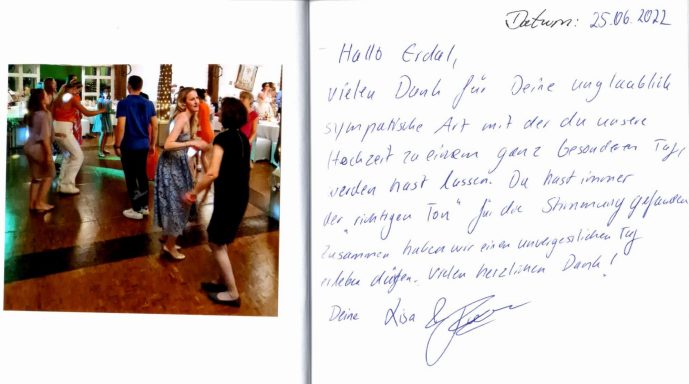 Datum: 25.06.2022
Hallo Erdal,
vielen Dank für Deine unglaublich
sympatische Art mit der du unsere
Hochzeit zu einem ganz besonderen Tag,
werden hast lassen. Du hast immer
der "richtigen Ton" für die Stimmung gefunden
Zusammen haben wir einen unvergesslichen Tag
erleben dürfen. Vielen herzlichen Dank!
Deine Lisa &